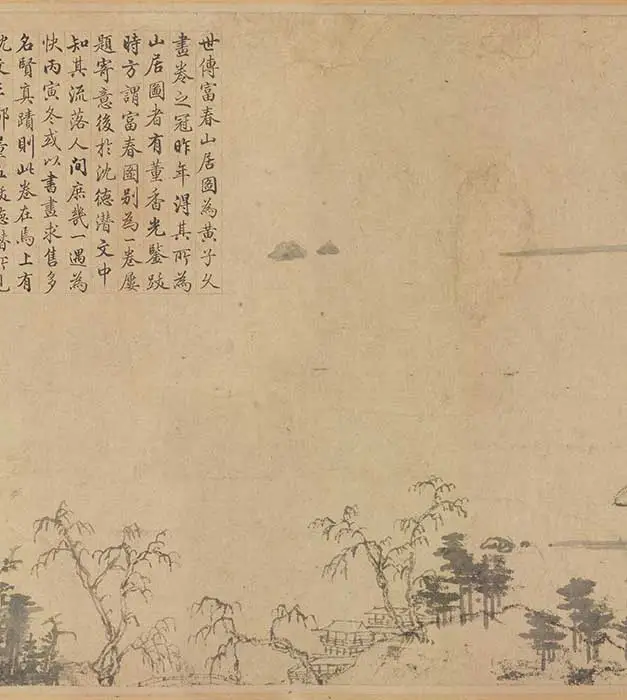 世傳富春山居圖為黃子久
畫卷之冠昨年得其所為
山居圖者有董香光鑒跋
時方謂富春圖別為一卷屢
題寄意後於沈德潛文中
知其流落人間庶幾一遇為
快丙寅冬或以書畫求售多
名賢真蹟則此卷在焉上有
沈文王鄒董五跋德潛所見